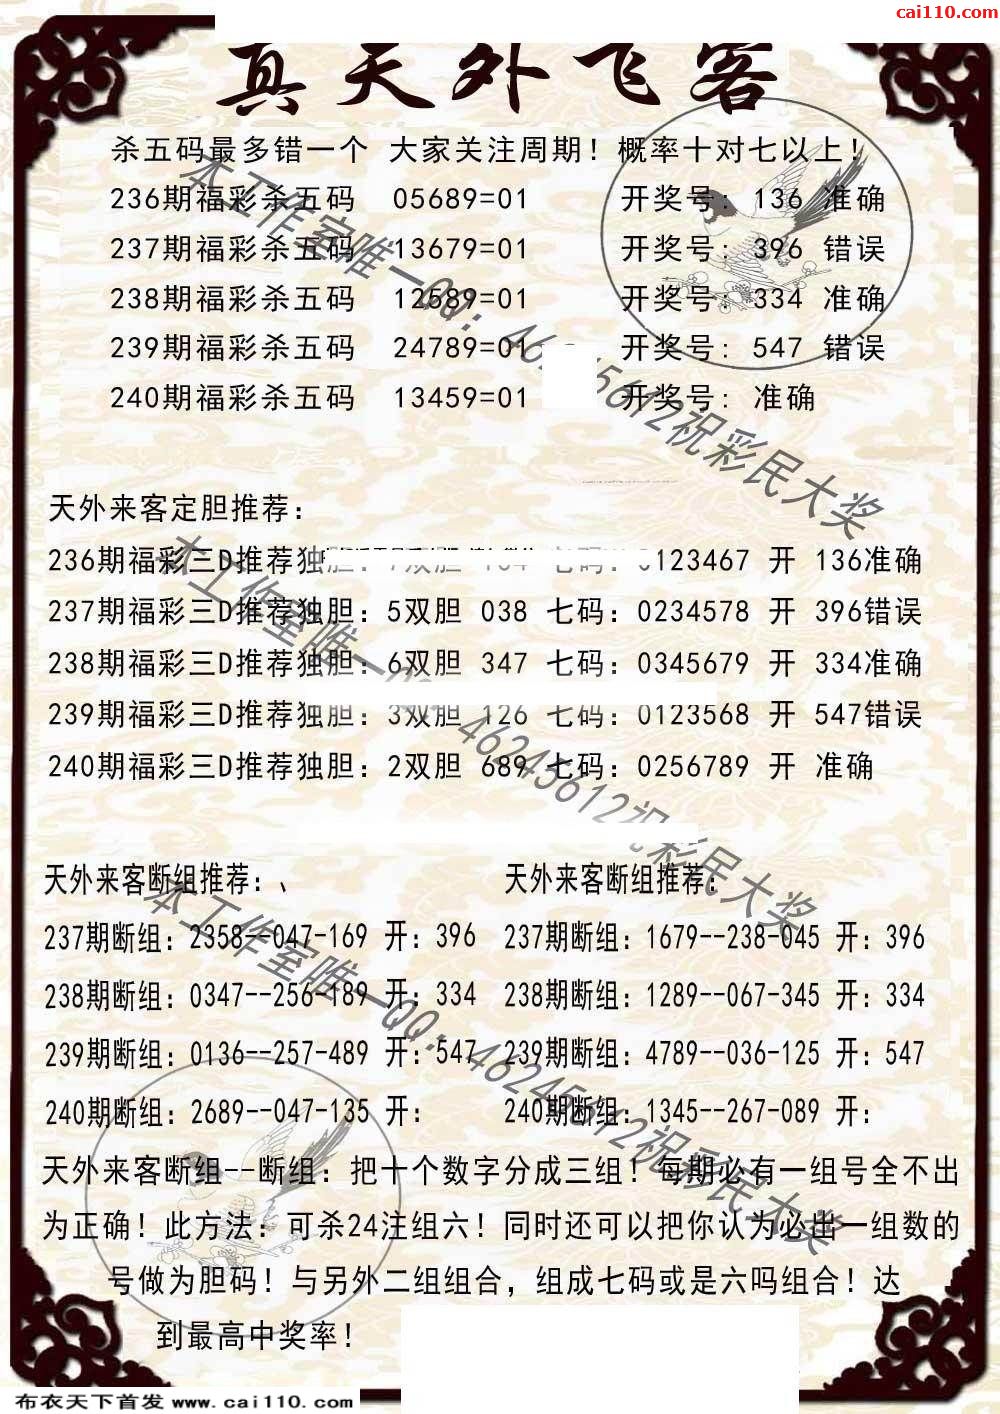 cai110.com
真天外飞客
杀五码最多错一个 大家关注周期！概率十对七以上！
236期福彩杀五码 05689=01 开奖号: 136 准确
237期福彩杀五码 13679=01 开奖号: 396 错误
238期福彩杀五码 12589=01 开奖号: 334 准确
239期福彩杀五码 24789=01 开奖号: 547 错误
240期福彩杀五码 13459=01 开奖号: 准确
天外来客定胆推荐:
236期福彩三D推荐独胆: 双胆 七码: 0123467 开 136准确
237期福彩三D推荐独胆: 5双胆 038 七码: 0234578 开 396错误
238期福彩三D推荐独胆: 6双胆 347 七码: 0345679 开 334准确
239期福彩三D推荐独胆: 3双胆 126 七码: 0123568 开 547错误
240期福彩三D推荐独胆: 2双胆 689 七码: 0256789 开 准确
天外来客断组推荐:、 天外来客断组推荐:
237期断组: 2358--047-169 开: 396 237期断组: 1679--238-045 开: 396
238期断组: 0347--256-189 开: 334 238期断组: 1289--067-345 开: 334
239期断组: 0136--257-489 开: 547 239期断组: 4789--036-125 开: 547
240期断组: 2689--047-135 开: 240期断组: 1345--267-089 开:
天外来客断组--断组: 把十个数字分成三组！每期必有一组号全不出
为正确！此方法: 可杀24注组六！同时还可以把你认为必出一组数的
号做为胆码！与另外二组组合, 组成七码或是六吗组合！达
到最高中奖率！
本工作室唯一QQ: 46245612祝彩民大奖
本工作室唯一QQ: 46245612祝彩民大奖
本工作室唯一QQ: 46245612祝彩民大奖
布衣天下首发 www.cai110.com